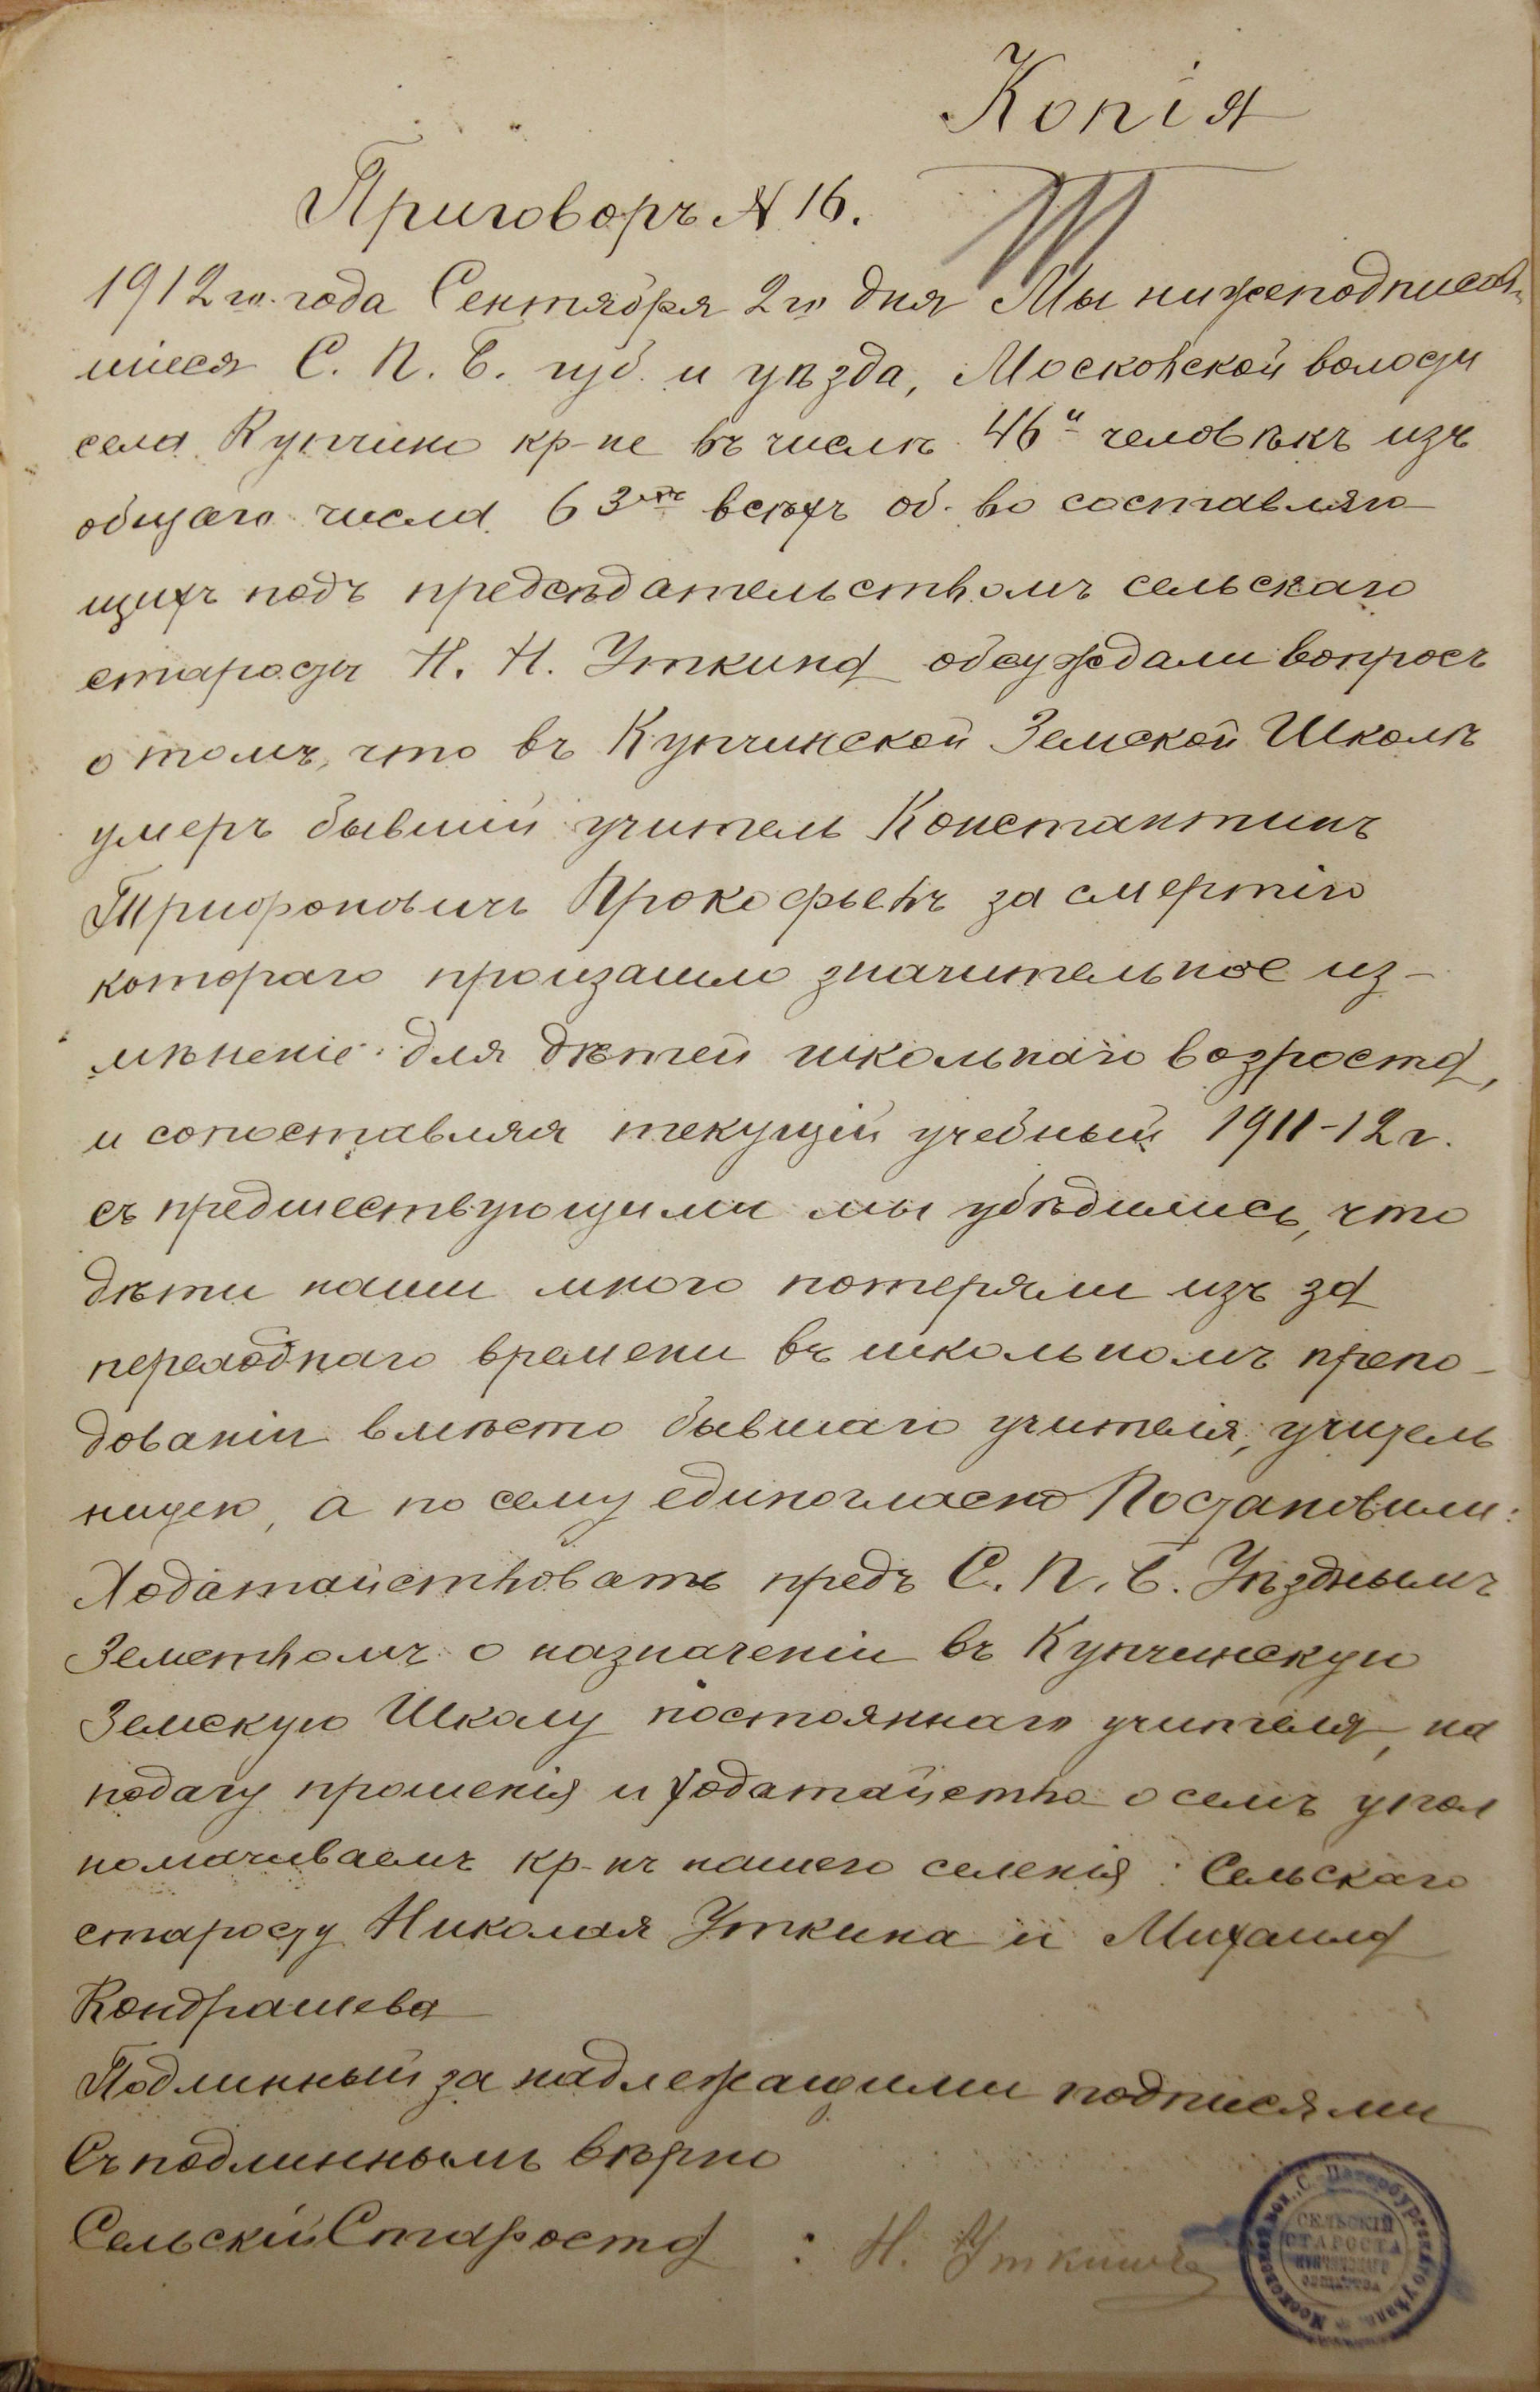 Копія
Приговоръ № 16.
1912 го. года Сентября 2 го дня Мы нижеподписав-
шіеся С. П. Б. губ. и уѣзда, Московской волости
села Купчино кр-не въ числѣ 46 и человѣкъ изъ
общаго числа 63 хъ всѣхъ об-во составляю-
щихъ подъ предсѣдательствомъ сельскаго
старосты Н. Н. Уткина обсуждали вопросъ
о томъ, что въ Купчинской Земской Школѣ
умеръ бывшій учитель Константинъ
Трифоновичъ Прокофьевъ за смертію
котораго произашло значительное из-
мѣненіе для дѣтей школьнаго возроста,
и сопоставляя текущій учебный 1911-12 г.
съ предшествующими мы убѣдились, что
дѣти наши много потеряли изъ за
переходнаго времени въ школьномъ препо-
дованіи вмѣсто бывшаго учителя, учитель
ницею, а по сему единогласно Постановили:
Ходатайствовать предъ С. П. Б. Уѣзднымъ
Земствомъ о назначеніи въ Купчинскую
Земскую Школу постояннаго учителя, на
подачу прошенія и ходатайство о семъ упол
номачиваемъ кр-нъ нашего селенія: Сельскаго
старосту Николая Уткина и Михаила
Кондрашева
Подлинный за надлежащими подписями
Съ подлиннымъ вѣрно
Сельскій Староста : Н. Уткинъ
Московской вол., С.-Петербургскаго уѣзда.
СЕЛЬСКІЙ
СТАРОСТА
КУПЧИНСКАГО
ОБЩЕСТВА